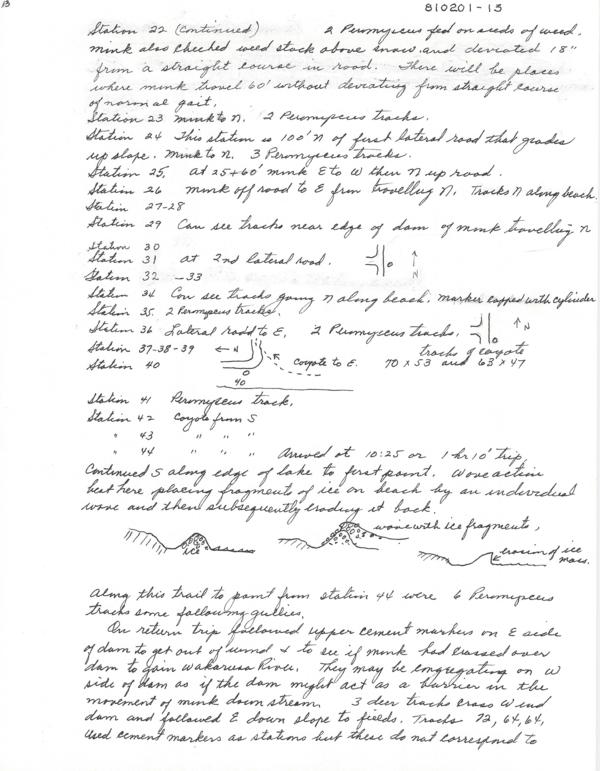 13
810201-15
Station 22 (continued) 2 Peromyscus fed on seeds of weed.
mink also checked weed stock above snow and deviated 18"
from a straight course in road. There will be places
where mink travel 60' without deviating from straight course
of normal gait.
Station 23 mink to N. 2 Peromyscus tracks.
Station 24 This station is 100' N of first lateral road that grades
up slope. Mink to N. 3 Peromyscus tracks.
Station 25. at 25+60' mink E to W then N up road.
Station 26 mink off road to E from travelling N. Tracks N along beach.
Station 27-28
Station 29 Can see tracks near edge of dam of mink travelling N
Station 30
Station 31 at 2nd lateral road. N
Station 32 -33
Station 34 Can see tracks going N along beach. marker capped with cylinder
Station 35. 2 Peromyscus tracks.
Station 36 Lateral road to E. 2 Peromyscus tracks. N
Station 37-38-39 N tracks of coyote
Station 40 coyote to E. 70 x 53 and 63 x 47
40
Station 41 Peromyscus track.
Station 42 Coyote from S
" 43 " " "
" 44 " " " Arrived at 10:25 or 1 hr 10' trip.
Continued S along edge of lake to first point. Wave action
beat here placing fragments of ice on beach by an individual
wave and then subsequently eroding it back.
wave with ice fragments,
ice
erosion of ice
mass.
Along this trail to point from station 44 were 6 Peromyscus
tracks some following gullies.
On return trip followed upper cement markers on E side
of dam to get out of wind & to see if mink had crossed over
dam to gain Wakarusa River. They may be congregating on W
side of dam as if the dam might act as a barrier in the
movement of mink down stream. 3 deer tracks cross W end
dam and followed E down slope to fields. Tracks 72, 64, 64,
Used cement markers as stations but these do not correspond to